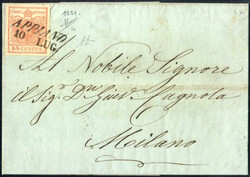 1851
APPIANO
10
LUG.
15 CENTES
Al Nobile Signore
il Sig. Dn Giusē Cagnola
Milano